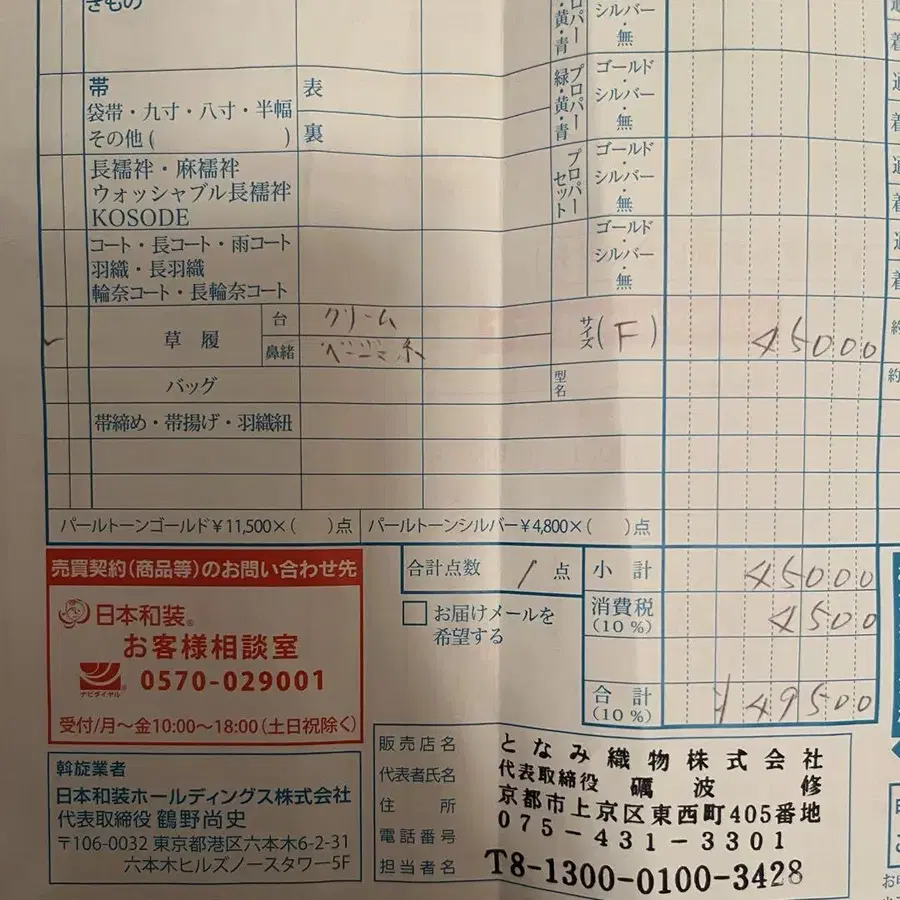 きもの
プロパー
黄・青
シルバー
・
無
帯
袋帯・九寸・八寸・半幅
その他（　　　）
表
裏
プロパー
緑・黄・青
ゴールド
・
シルバー
・
無
長襦袢・麻襦袢
ウォッシャブル長襦袢
KOSODE
プロパー
セット
ゴールド
・
シルバー
・
無
コート・長コート・雨コート
羽織・長羽織
輪奈コート・長輪奈コート
ゴールド
・
シルバー
・
無
草履
台
クリーム
鼻緒
サイズ
(F)
45000
バッグ
型名
帯締め・帯揚げ・羽織紐
パールトーンゴールド¥11,500×(　　)点
パールトーンシルバー¥4,800×(　　)点
売買契約(商品等)のお問い合わせ先
日本和装®
お客様相談室
ナビダイヤル
0570-029001
受付/月〜金10:00〜18:00(土日祝除く)
合計点数 1 点
お届けメールを
希望する
小計 45000
消費税
(10%)
4500
合計
(10%)
¥49500
斡旋業者
日本和装ホールディングス株式会社
代表取締役 鶴野尚史
〒106-0032 東京都港区六本木6-2-31
六本木ヒルズノースタワー5F
販売店名 となみ織物株式会社
代表者氏名 代表取締役 礪波 修
住所 京都市上京区東西町405番地
電話番号 075-431-3301
担当者名 T8-1300-0100-3428